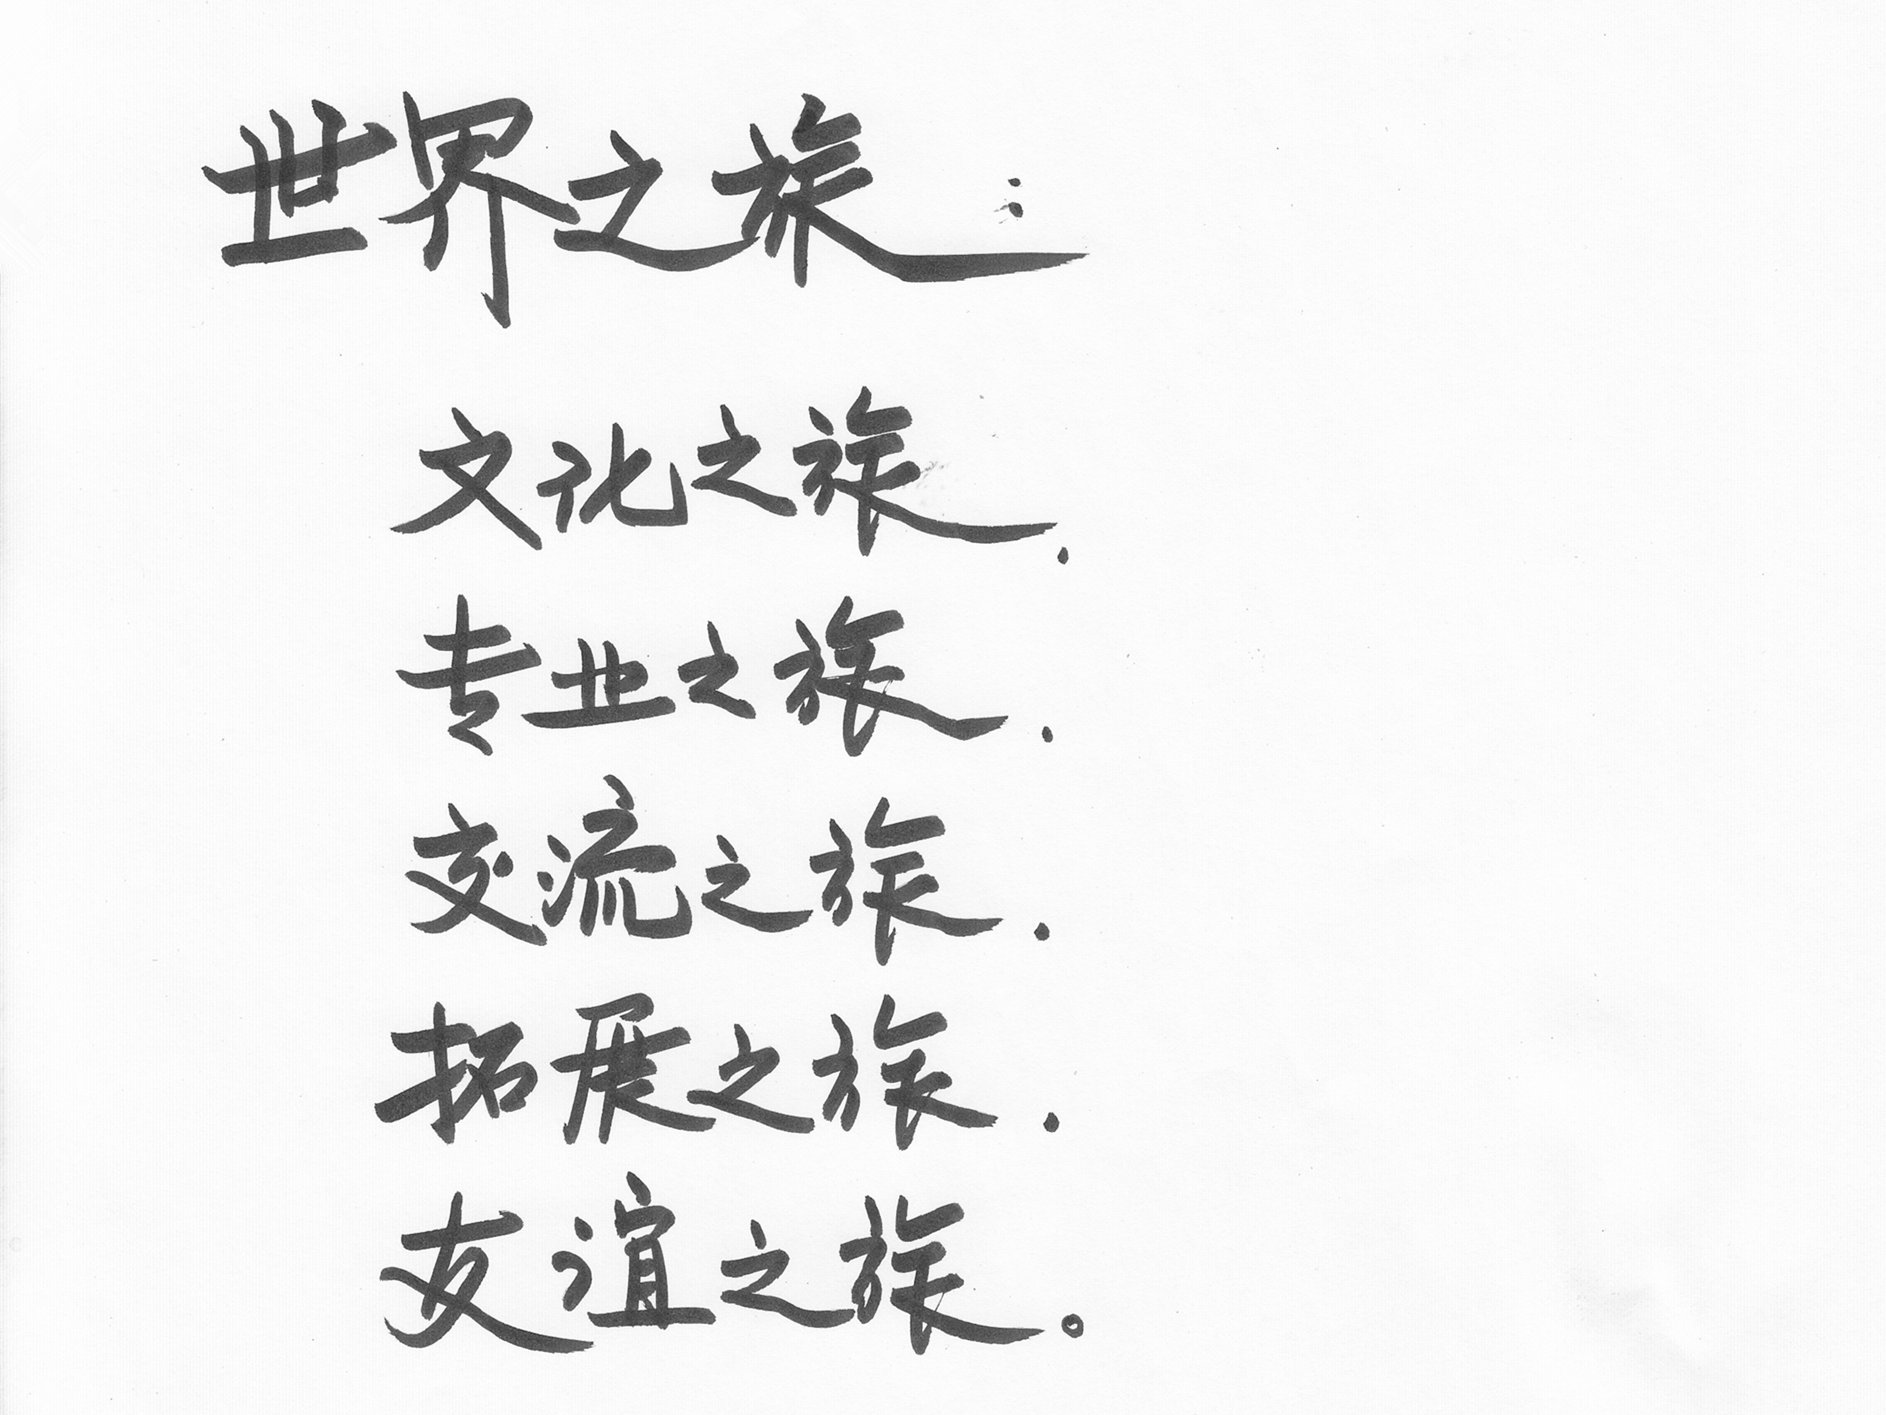 世界之旅：
文化之旅.
专业之旅.
交流之旅.
拓展之旅.
友谊之旅。